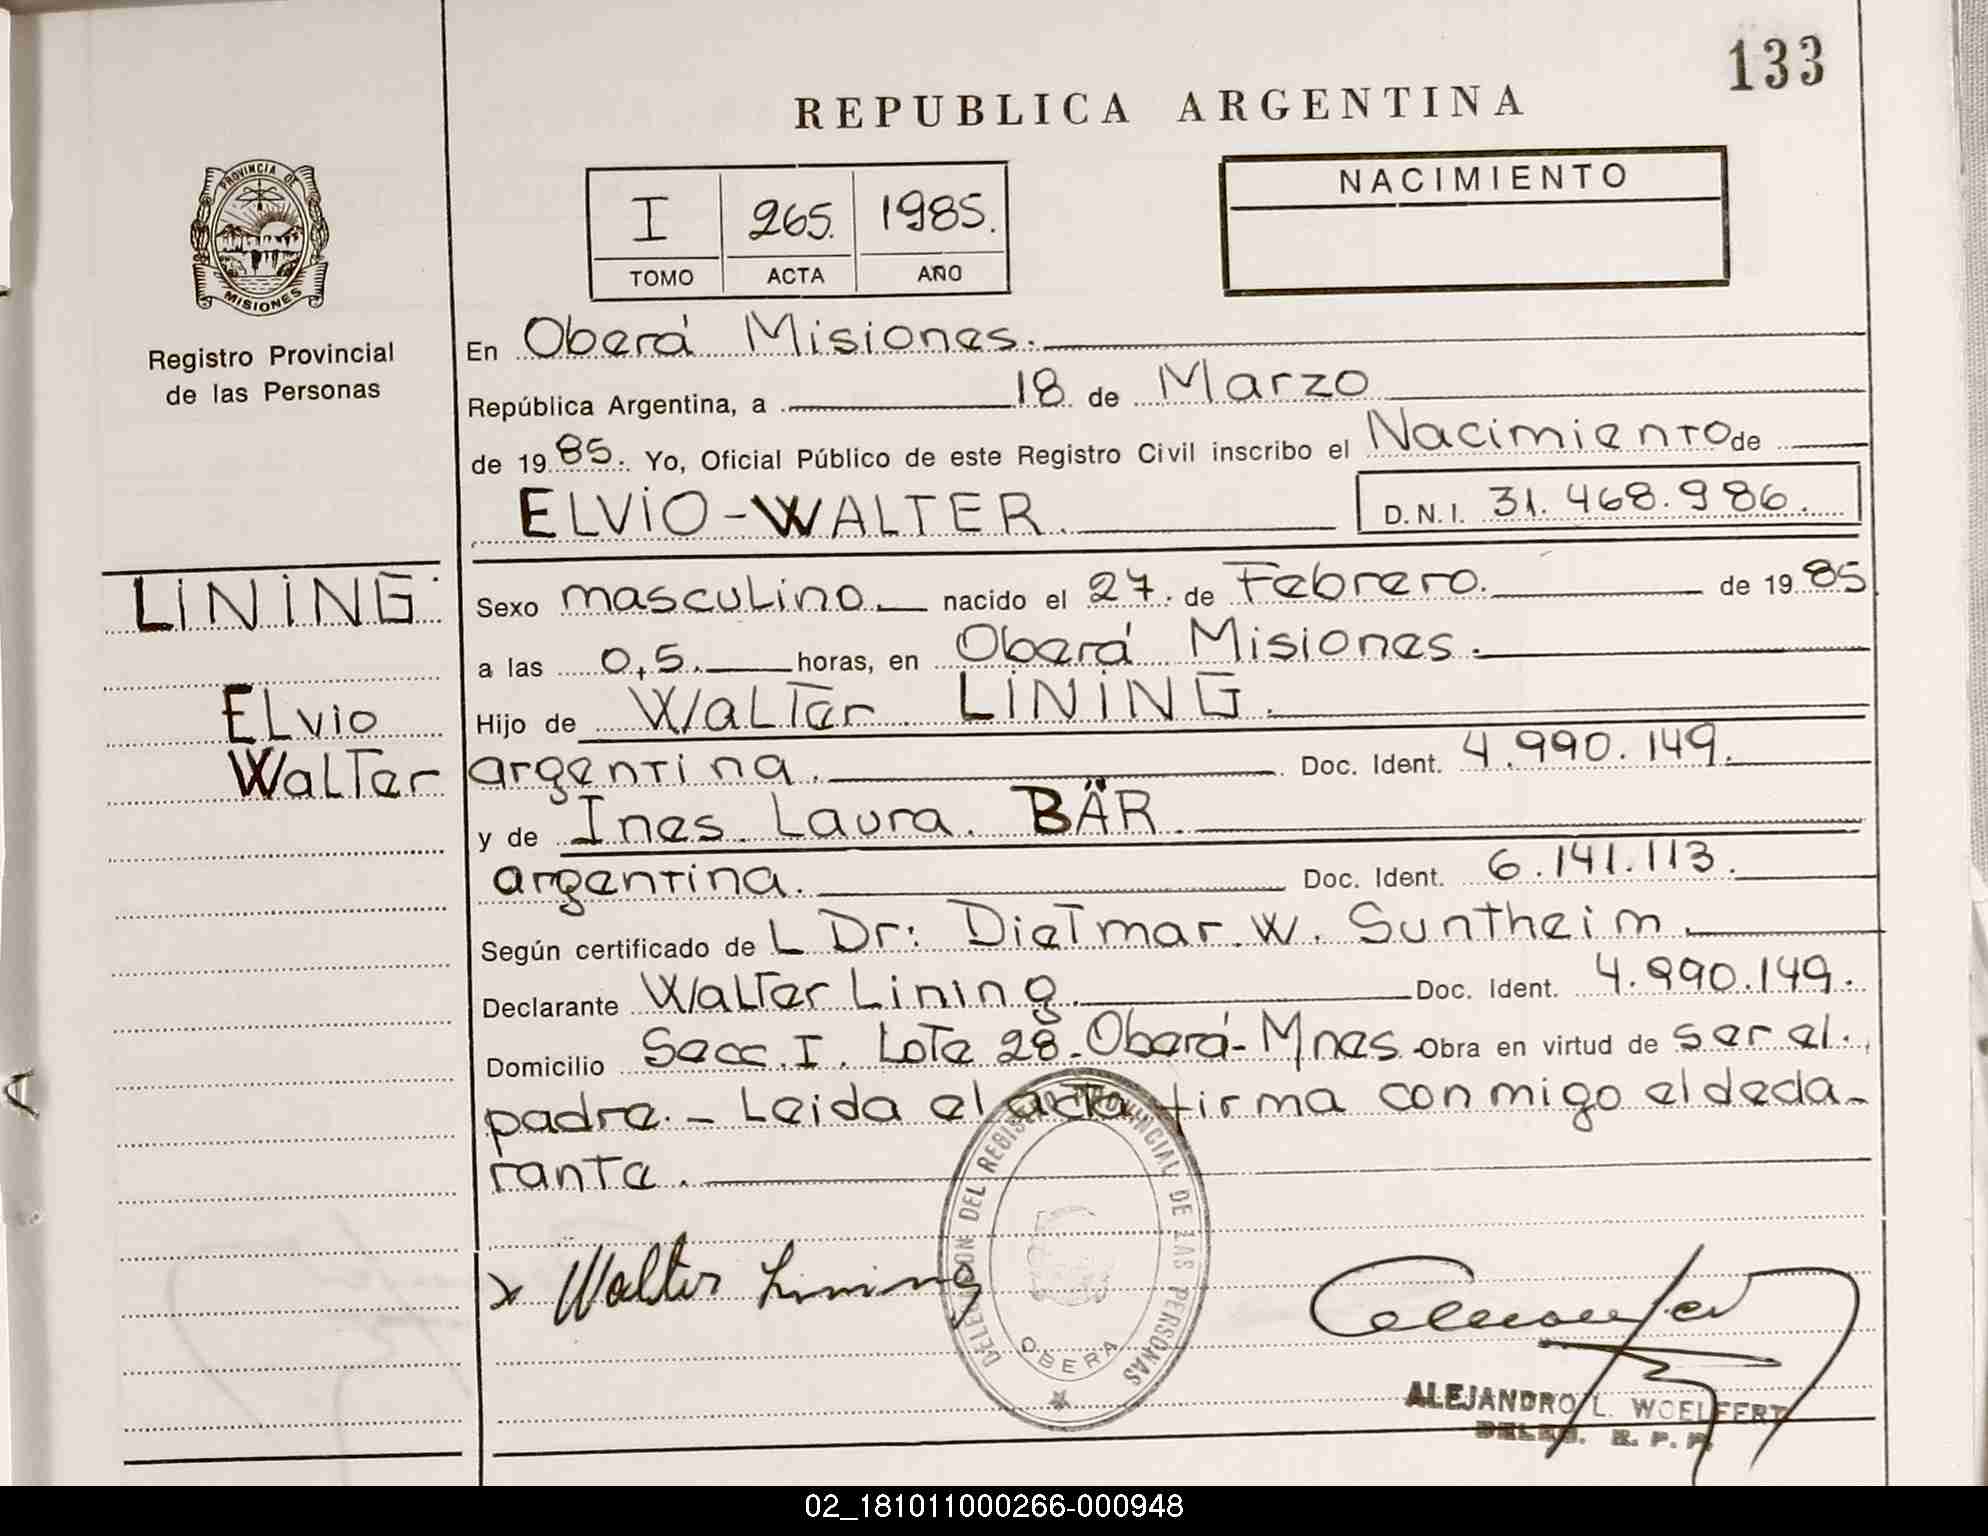 133
REPUBLICA ARGENTINA
PROVINCIA DE
MISIONES
Registro Provincial
de las Personas
I 265. 1985.
TOMO ACTA AÑO
NACIMIENTO
En Oberá Misiones.
República Argentina, a 18 de Marzo
de 1985. Yo, Oficial Público de este Registro Civil inscribo el Nacimiento de
ELViO-WALTER D.N.I. 31.468.986.
LiNiNG
Elvio
Walter
Sexo masculino nacido el 27. de Febrero. de 1985
a las 0,5. horas, en Oberá Misiones.
Hijo de Walter LiNiNG.
argentina. Doc. Ident. 4.990.149.
y de Ines Laura BÄR
argentina. Doc. Ident. 6.141.113.
Según certificado de L Dr: Dietmar W. Suntheim.
Declarante Walter Lining. Doc. Ident. 4.990.149.
Domicilio Secc. I. Lote 28-Oberá-Mnes. Obra en virtud de ser el
padre.- Leida el acta firma conmigo el decla-
rante.
Walter Lining
DELEGACION DEL REGISTRO PROVINCIAL DE LAS PERSONAS
OBERA
ALEJANDRO L. WOELFERT
DELEG. R. P. P.
02_181011000266-000948